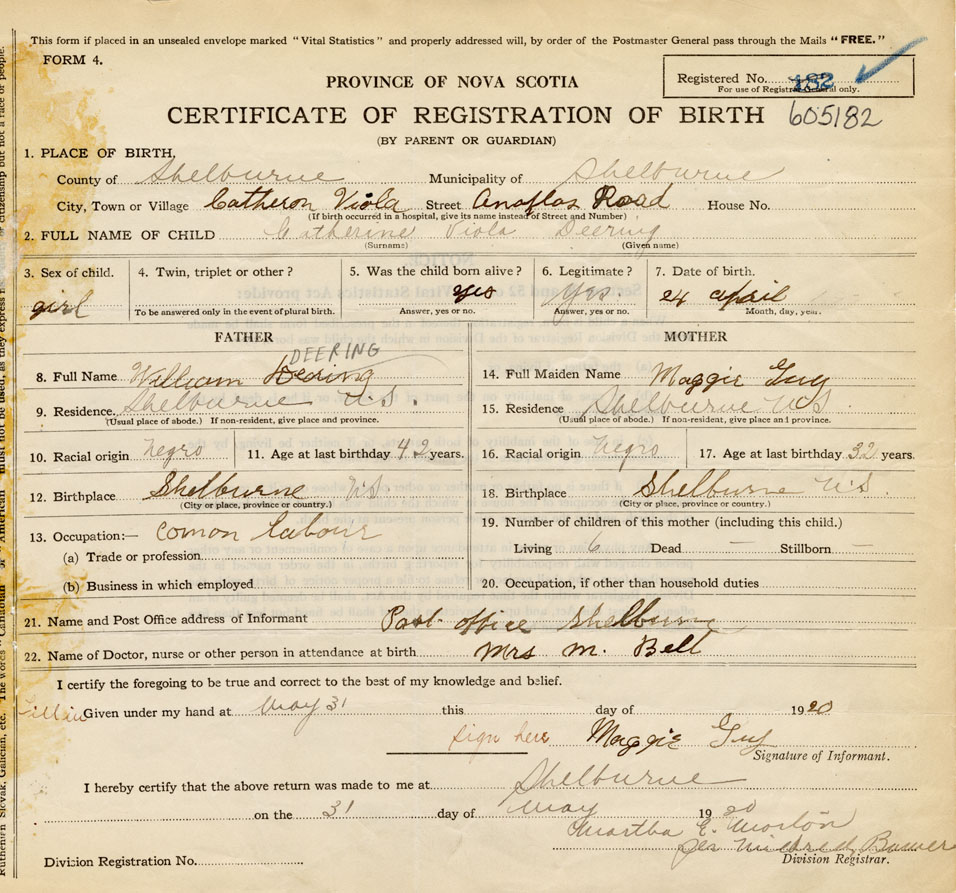 This form if placed in an unsealed envelope marked "Vital Statistics" and properly addressed will, by order of the Postmaster General pass through the Mails "FREE."
FORM 4.
Registered No. 182
For use of Registrar General only.
PROVINCE OF NOVA SCOTIA
CERTIFICATE OF REGISTRATION OF BIRTH 605182
(BY PARENT OR GUARDIAN)
1. PLACE OF BIRTH,
County of Shelburne Municipality of Shelburne
City, Town or Village Catheron Viola Street Anaflas Road House No.
(If birth occurred in a hospital, give its name instead of Street and Number)
2. FULL NAME OF CHILD Catherine Viola Deering
(Surname) (Given name)
3. Sex of child. 4. Twin, triplet or other? 5. Was the child born alive? 6. Legitimate? 7. Date of birth.
girl yes Yes. 24 april
To be answered only in the event of plural birth. Answer, yes or no. Answer, yes or no. Month, day, year.
FATHER MOTHER
DEERING
8. Full Name William Deering 14. Full Maiden Name Maggie Guy
9. Residence. Shelburne N.S. 15. Residence Shelburne NS
(Usual place of abode.) If non-resident, give place and province. (Usual place of abode.) If non-resident, give place and province.
10. Racial origin Negro 11. Age at last birthday 42 years. 16. Racial origin Negro 17. Age at last birthday 32 years.
12. Birthplace Shelburne N.S 18. Birthplace Shelburne N.S
(City or place, province or country.) (City or place, province or country.)
13. Occupation:— comon labour 19. Number of children of this mother (including this child.)
(a) Trade or profession Living 6 Dead — Stillborn —
(b) Business in which employed 20. Occupation, if other than household duties
21. Name and Post Office address of Informant Post office Shelburne
22. Name of Doctor, nurse or other person in attendance at birth Mrs M. Bell
I certify the foregoing to be true and correct to the best of my knowledge and belief.
Given under my hand at May 31 this day of 1920
sign here Maggie Guy
Signature of Informant.
I hereby certify that the above return was made to me at Shelburne
on the 31 day of May 1920
Martha E. Morton
per Mildred Bower
Division Registration No. Division Registrar.